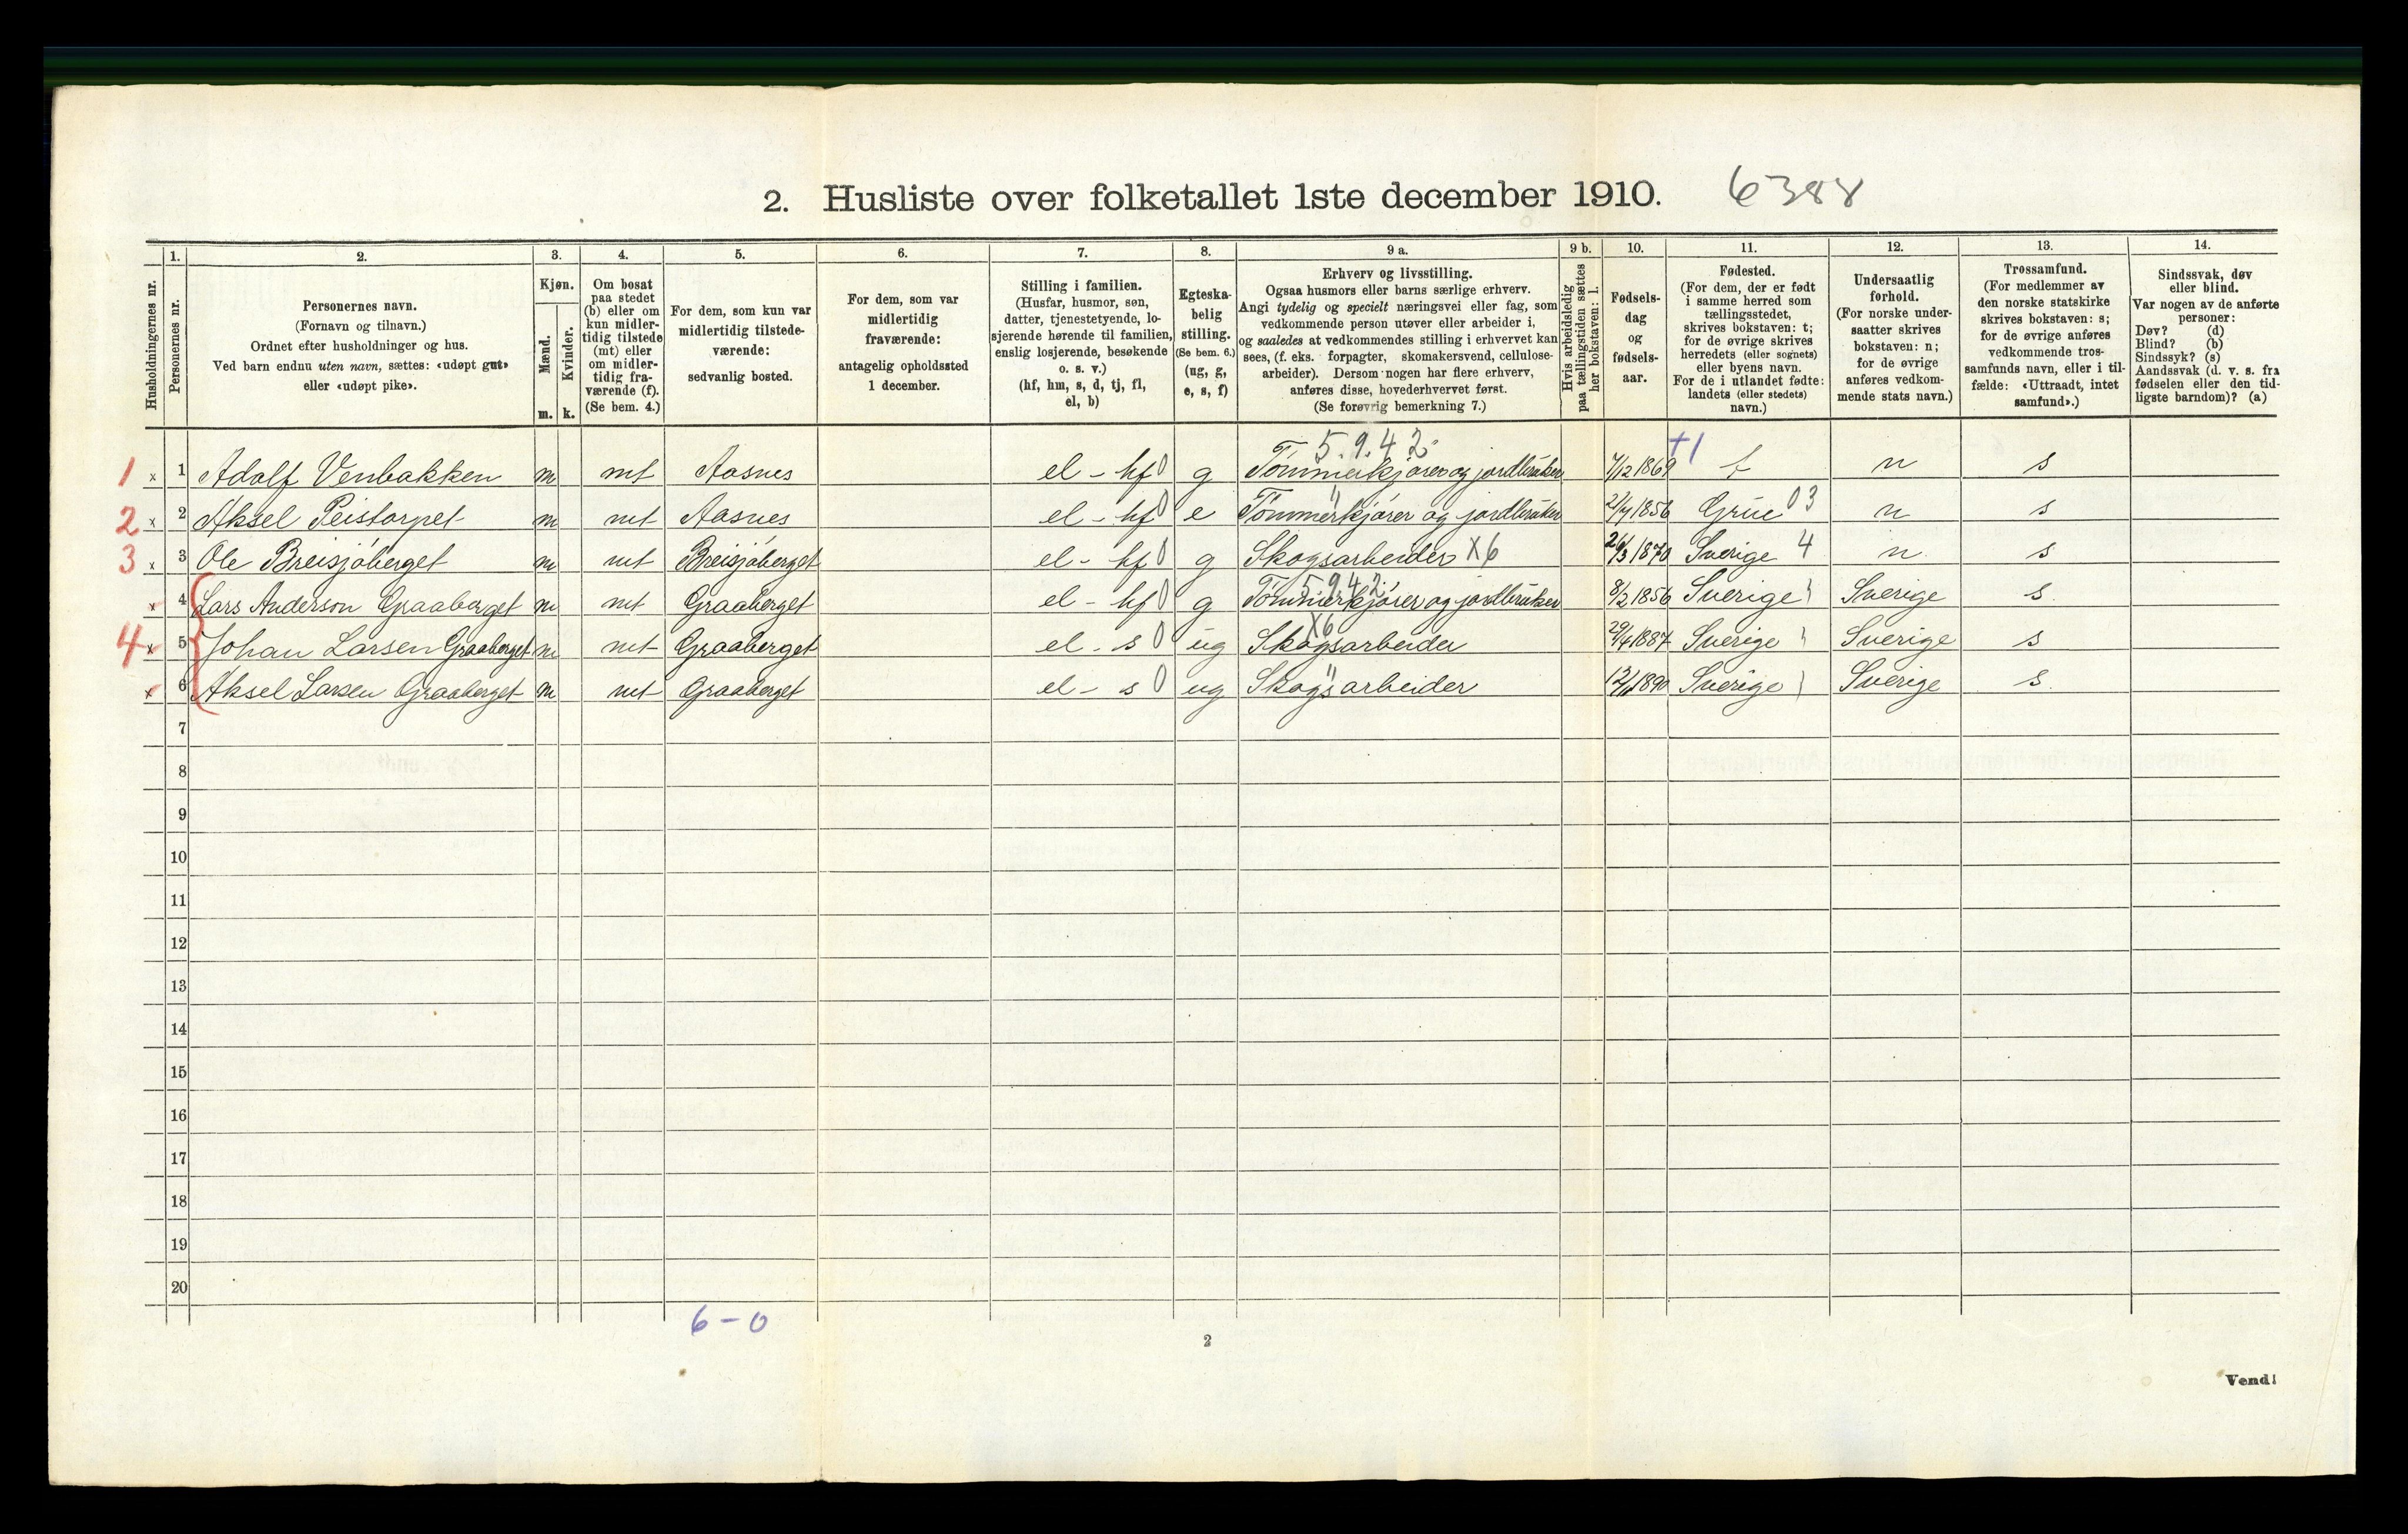 2. Husliste over folketallet 1ste december 1910. 6388
Husholdningernes nr.
1. Personernes nr.
2. Personernes navn. (Fornavn og tilnavn.) Ordnet efter husholdninger og hus. Ved barn endnu uten navn, sættes: «udøpt gut» eller «udøpt pike».
3. Kjøn. Mænd. m. Kvinder. k.
4. Om bosat paa stedet (b) eller om kun midlertidig tilstede (mt) eller om midlertidig fraværende (f). (Se bem. 4.)
5. For dem, som kun var midlertidig tilstedeværende: sedvanlig bosted.
6. For dem, som var midlertidig fraværende: antagelig opholdssted 1 december.
7. Stilling i familien. (Husfar, husmor, søn, datter, tjenestetyende, losjerende hørende til familien, enslig losjerende, besøkende o. s. v.) (hf, hm, s, d, tj, fl, el, b)
8. Egteskabelig stilling. (Se bem. 6.) (ug, g, e, s, f)
9 a. Erhverv og livsstilling. Ogsaa husmors eller barns særlige erhverv. Angi tydelig og specielt næringsvei eller fag, som vedkommende person utøver eller arbeider i, og saaledes at vedkommendes stilling i erhvervet kan sees, (f. eks. forpagter, skomakersvend, cellulosearbeider). Dersom nogen har flere erhverv, anføres disse, hovederhvervet først. (Se forøvrig bemerkning 7.)
9 b. Hvis arbeidsledig paa tællingstiden sættes her bokstaven: l.
10. Fødselsdag og fødselsaar.
11. Fødested. (For dem, der er født i samme herred som tællingsstedet, skrives bokstaven: t; for de øvrige skrives herredets (eller sognets) eller byens navn. For de i utlandet fødte: landets (eller stedets) navn.)
12. Undersaatlig forhold. (For norske undersaatter skrives bokstaven: n; for de øvrige anføres vedkommende stats navn.)
13. Trossamfund. (For medlemmer av den norske statskirke skrives bokstaven: s; for de øvrige anføres vedkommende trossamfunds navn, eller i tilfælde: «Uttraadt, intet samfund».)
14. Sindssvak, døv eller blind. Var nogen av de anførte personer: Døv? (d) Blind? (b) Sindssyk? (s) Aandssvak (d. v. s. fra fødselen eller den tidligste barndom)? (a)
5.9.42 +1
1 x 1 Adolf Venbakken m mt Aasnes el - hf 0 g Tömmerkjörer og jordbruker 7/12 1869 t n s
2 x 2 Aksel Peistorpet m mt Aasnes el - hf 0 e " Tömmerkjörer og jordbruker 2/4 1856 Grue 03 n s
3 x 3 Ole Breisjöberget m mt Breisjöberget el - hf 0 g Skogsarbeider X6 26/3 1870 Sverige 4 n s
x 4 Lars Anderson Graaberget m mt Graaberget el - hf 0 g 5942 Tömmerkjörer og jordbruker 8/2 1856 Sverige Sverige s
4 x 5 Johan Larsen Graaberget m mt Graaberget el - s 0 ug X6 Skogsarbeider 29/4 1887 Sverige Sverige s
x 6 Aksel Larsen Graaberget m mt Graaberget el - s 0 ug " Skogsarbeider 1890 Sverige Sverige s
7
8
9
10
11
12
13
14
15
16
17
18
19
20
6-0
2
Vend!